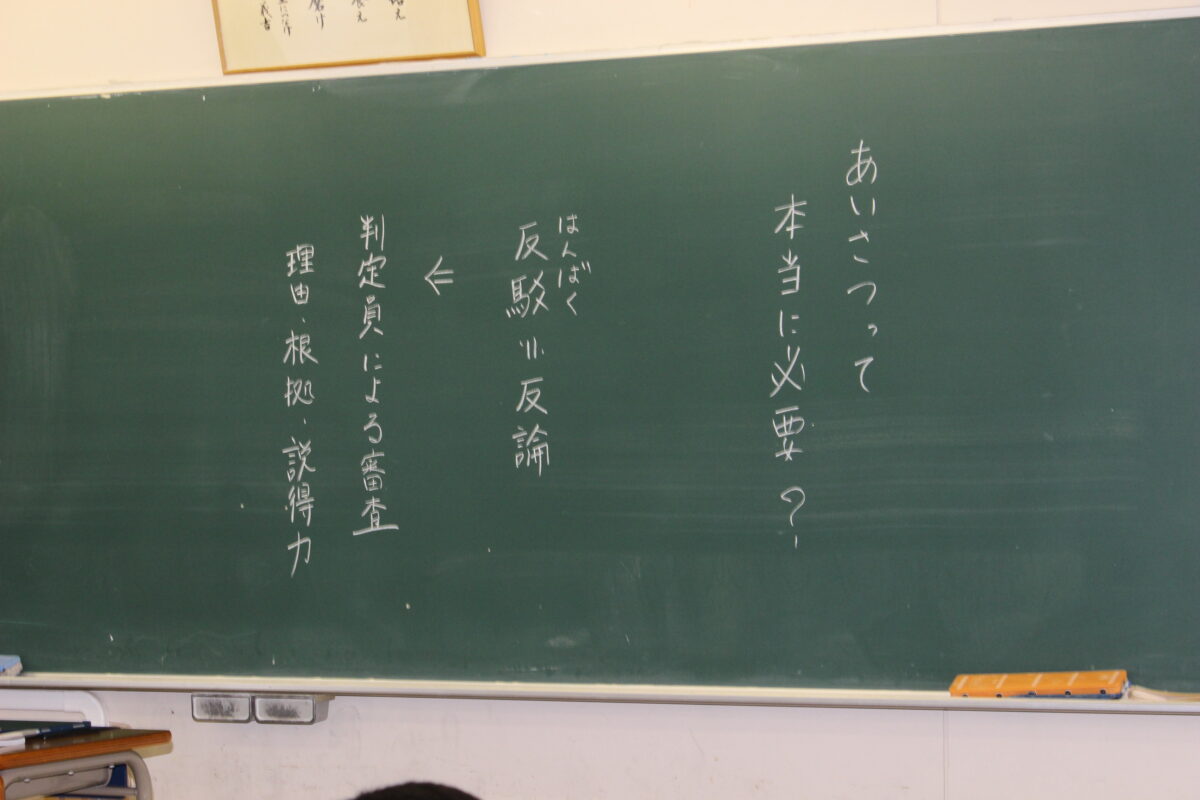 あいさつって
本当に必要?
はんばく
反駁=反論
⇐
判定員による審査
理由・根拠・説得力